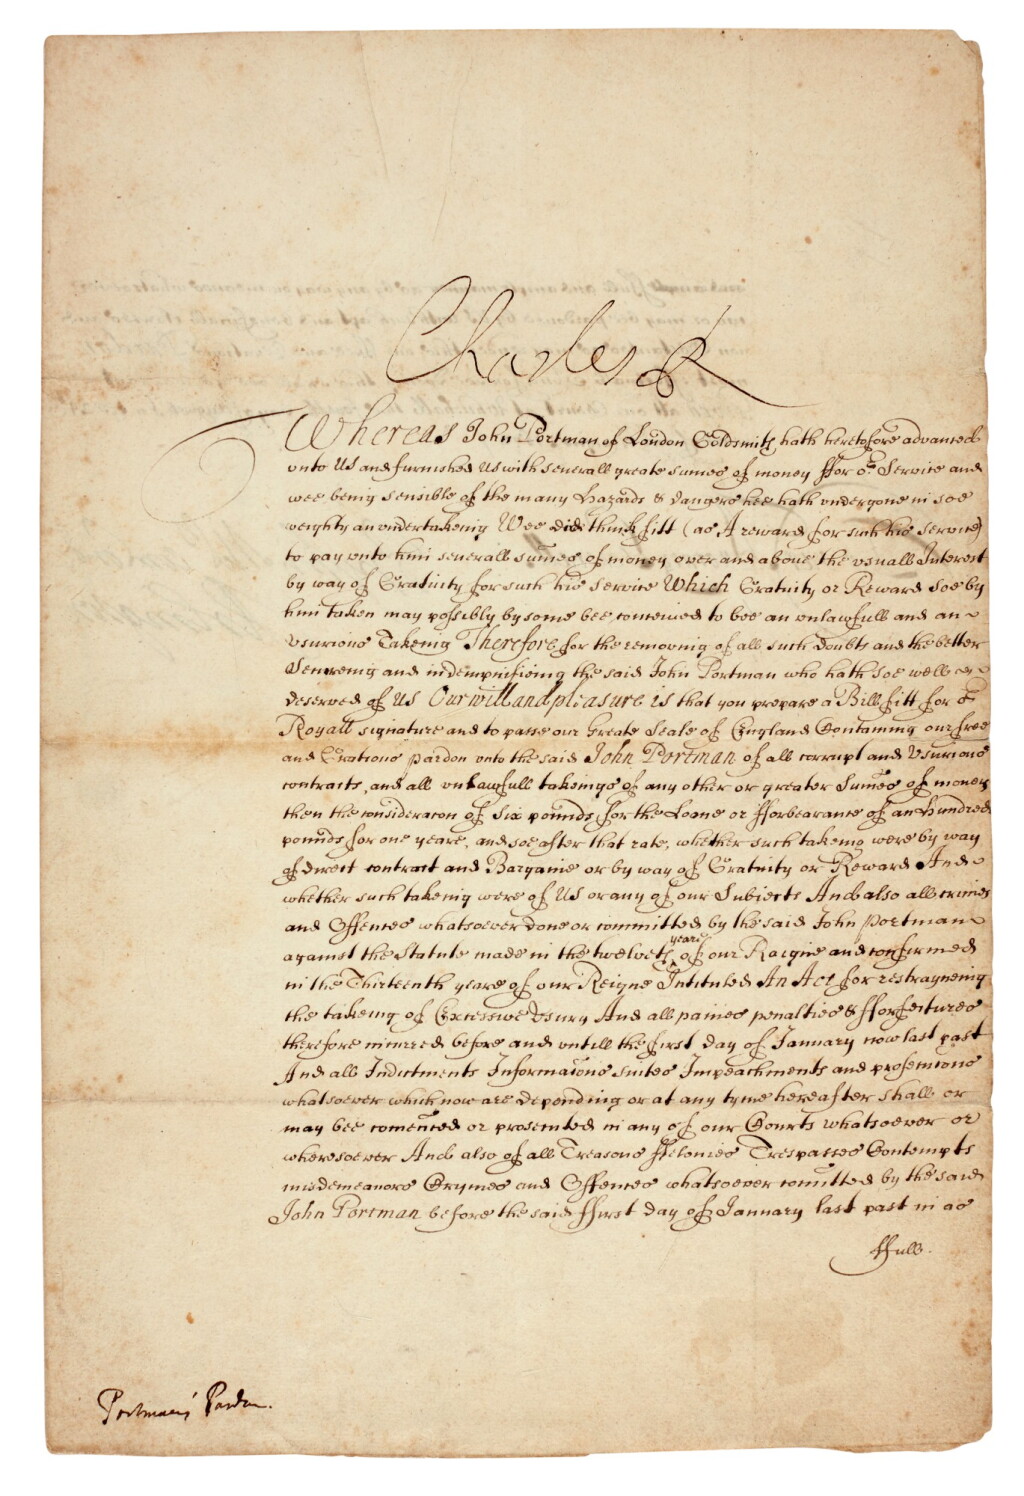 Charles R
Whereas John Portman of London Goldsmith hath heretofore advanced
vnto Us and furnished Us with severall greate sumes of money ffor or. Service and
wee being sensible of the many hazards & dangers hee hath vndergone in soe
weighty an vndertakeing Wee did think fitt (as A reward for such his service)
to pay vnto him severall sumes of money over and above the vsuall Interest
by way of Gratuity for such his service Which Gratuity or Reward soe by
him taken may possibly by some bee conceived to bee an vnlawfull and an
vsurious Takeing Therefore for the removing of all such Doubts and the better
Secureing and indempnifieing the said John Portman who hath soe well
deserved of Us Our will and pleasure is that you prepare a Bill fitt for or
Royall signature and to passe our Greate Seale of England Containing our free
and Gratious pardon vnto the said John Portman of all corrupt and Usurious
contracts, and all vnlawfull takeings of any other or greater Sumes of money
then the consideracon of Six pounds for the Loane or fforbearance of an hundred
pounds for one yeare, and soe after that rate, whether such takeing were by way
of direct contract and Bargaine or by way of Gratuity or Reward And
whether such takeing were of Us or any of our Subjects And also all crimes
and Offences whatsoever done or committed by the said John Portman
against the Statute made in the twelveth yeare of our Raigne and confirmed
in the Thirteenth yeare of our Reigne Intituled An Act for restrayneing
the takeing of Excessive Usury And all paines penalties & fforfeitures
therefore incurred before and vntill the first day of January now last past
And all Indictments Informacons suites Impeachments and prosecucons
whatsoever which now are depending or at any tyme hereafter shall or
may bee comenced or prosecuted in any of our Courts whatsoever or
wheresoever And also of all Treasons ffelonies Trespasses Contempts
misdemeanors Crymes and Offences whatsoever comitted by the said
John Portman before the said ffirst day of January last past in as
ffull.
Portmans Pardon.